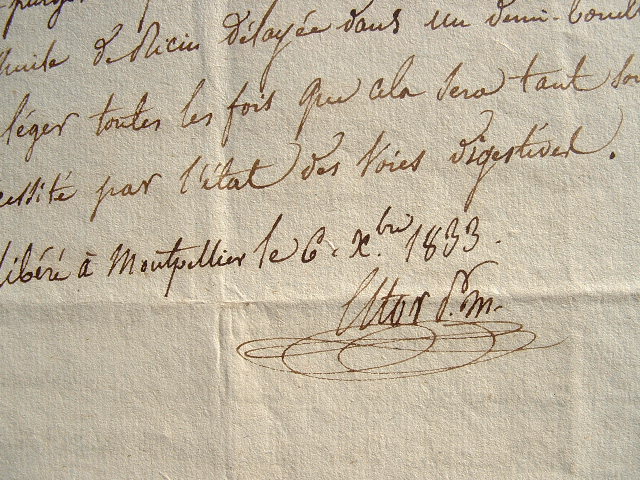 purger
huile de Ricin délayée dans un demi-bouil
léger toutes les fois que cela sera tant soi
cessité par l'état des voies digestives.
libéré à Montpellier le 6 Xbre 1833.
d. m.